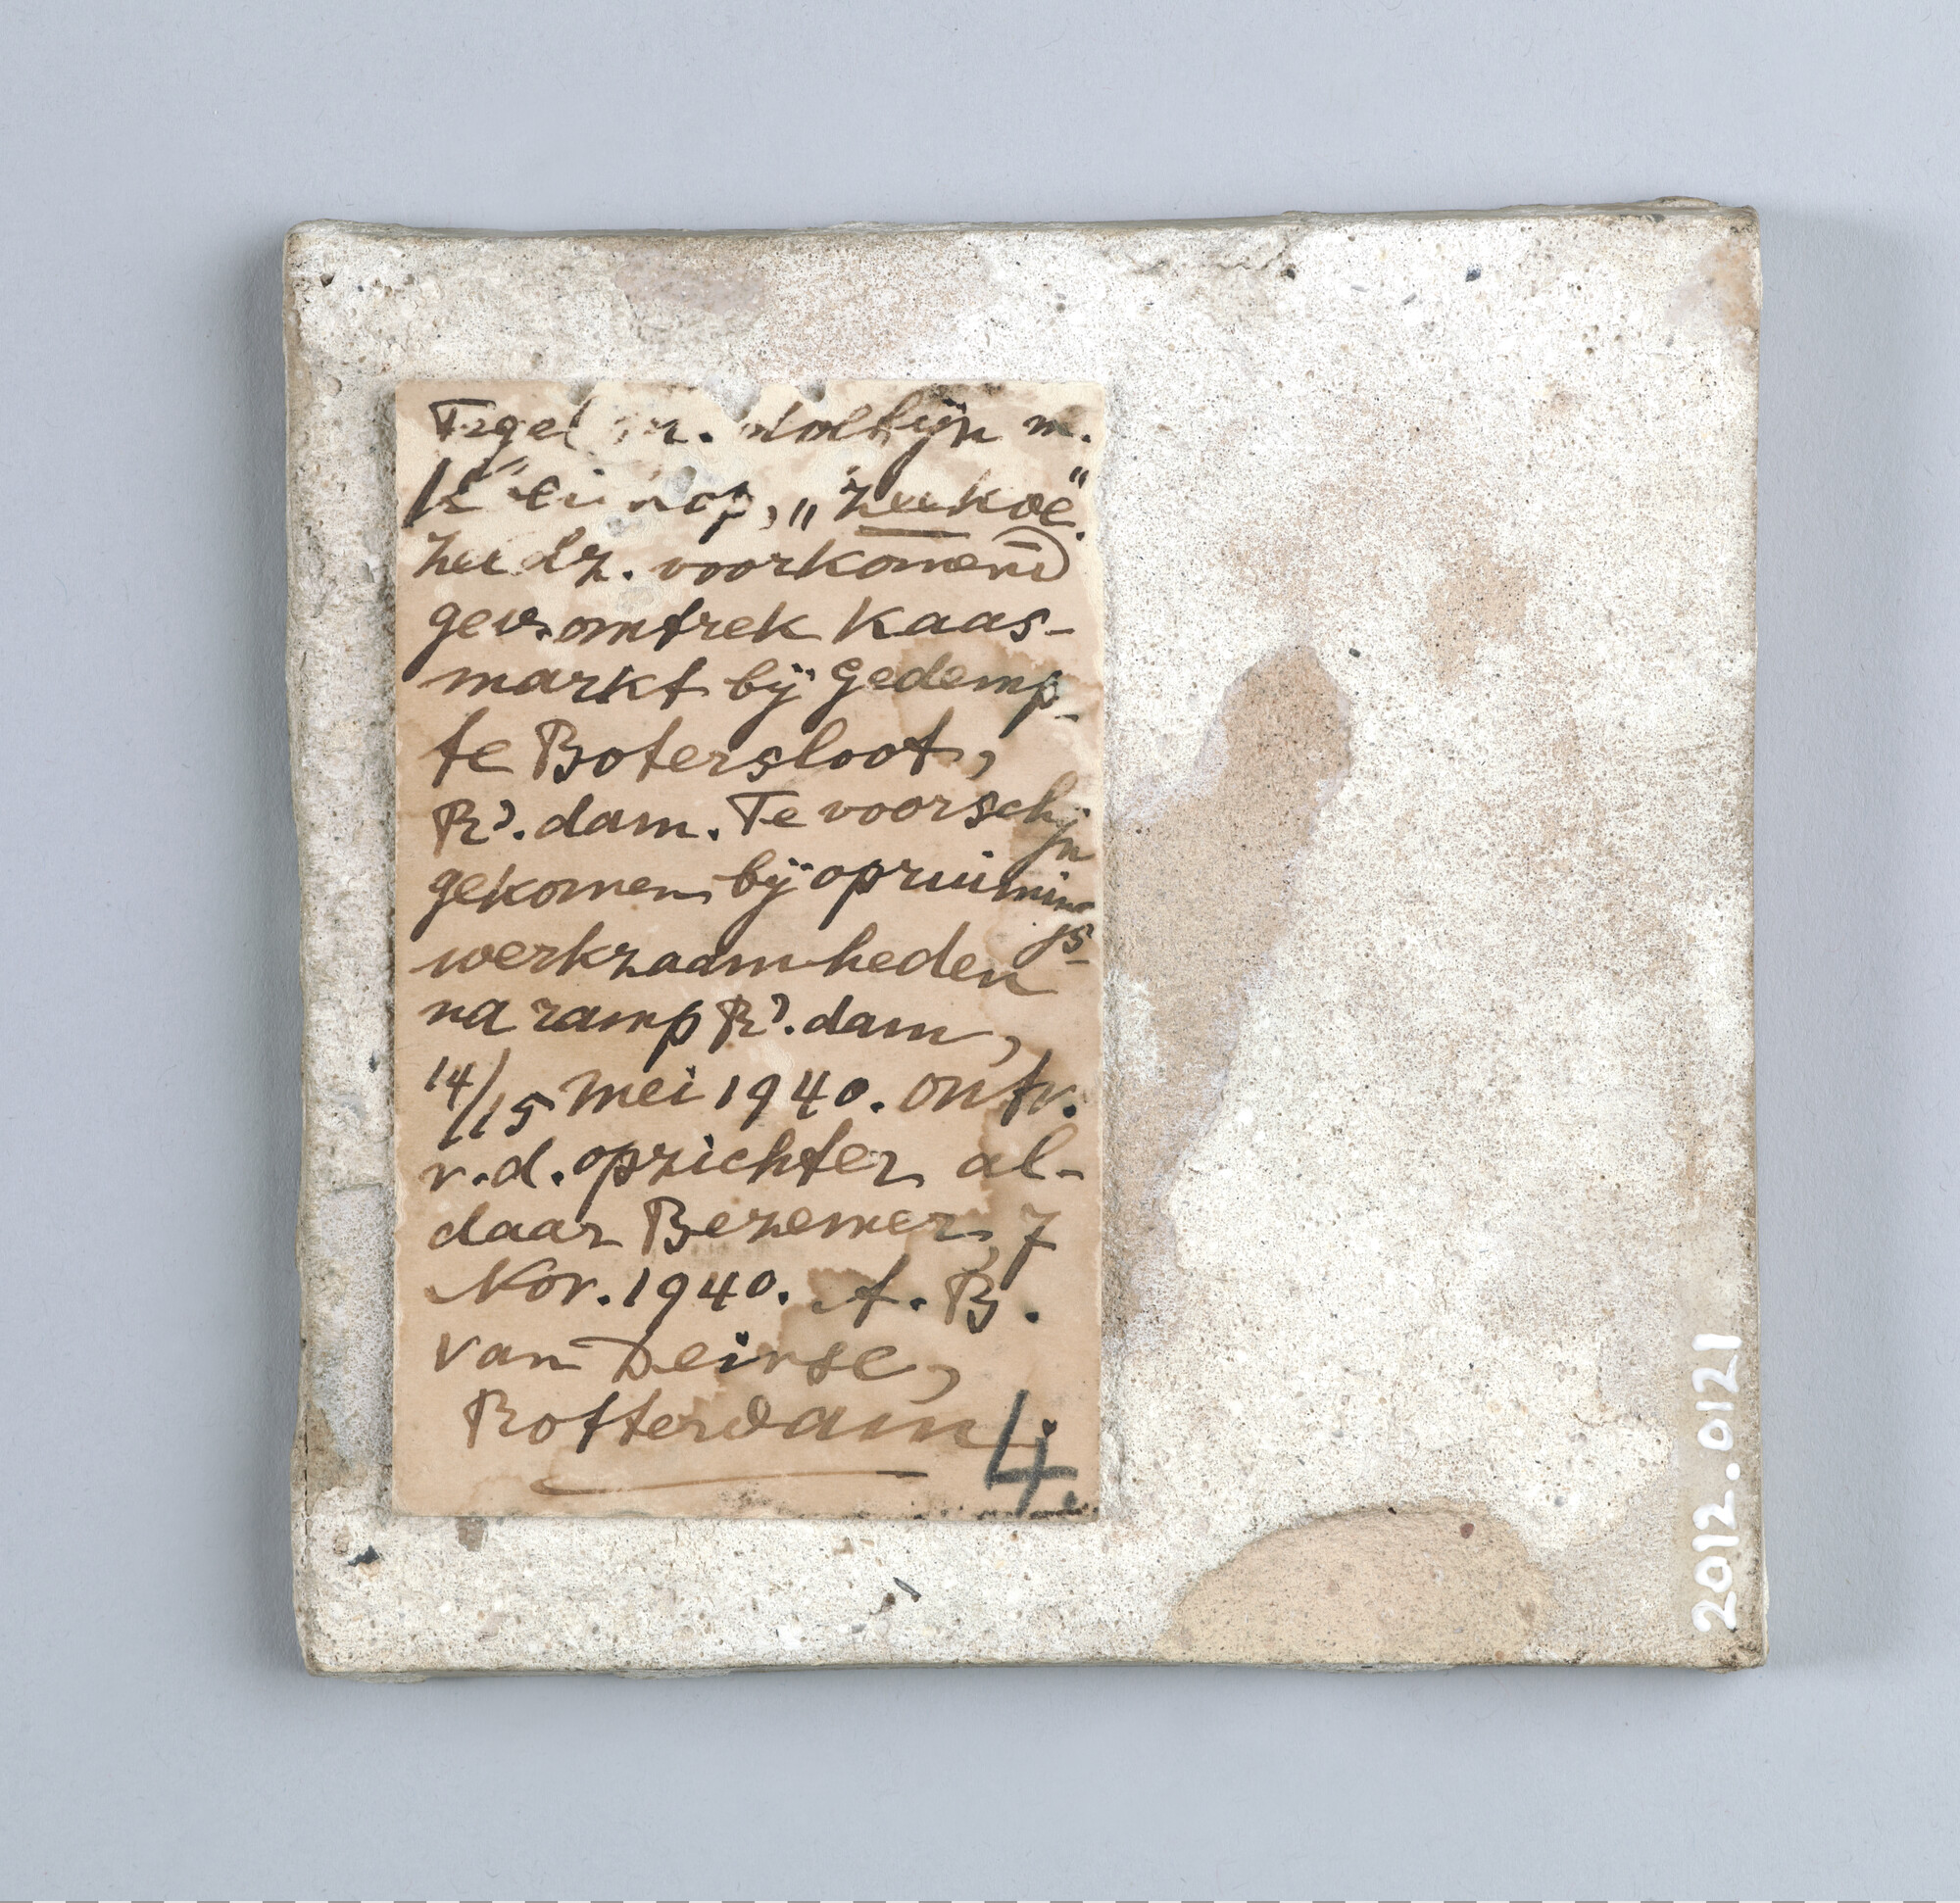 Tegel m. dolfijn m.
kop, „Zeekoe"
voorkomend
gev. omtrek Kaas-
markt bij Gedemp-
te Botersloot,
R'.dam. Te voorschijn
gekomen bij opruimings-
werkzaamheden
na ramp R'.dam,
14/15 Mei 1940. ontv.
v.d. opzichter al-
daar Bezemer, 7
Nov. 1940. A.B.
van Deinse,
Rotterdam
4.
2012.0121